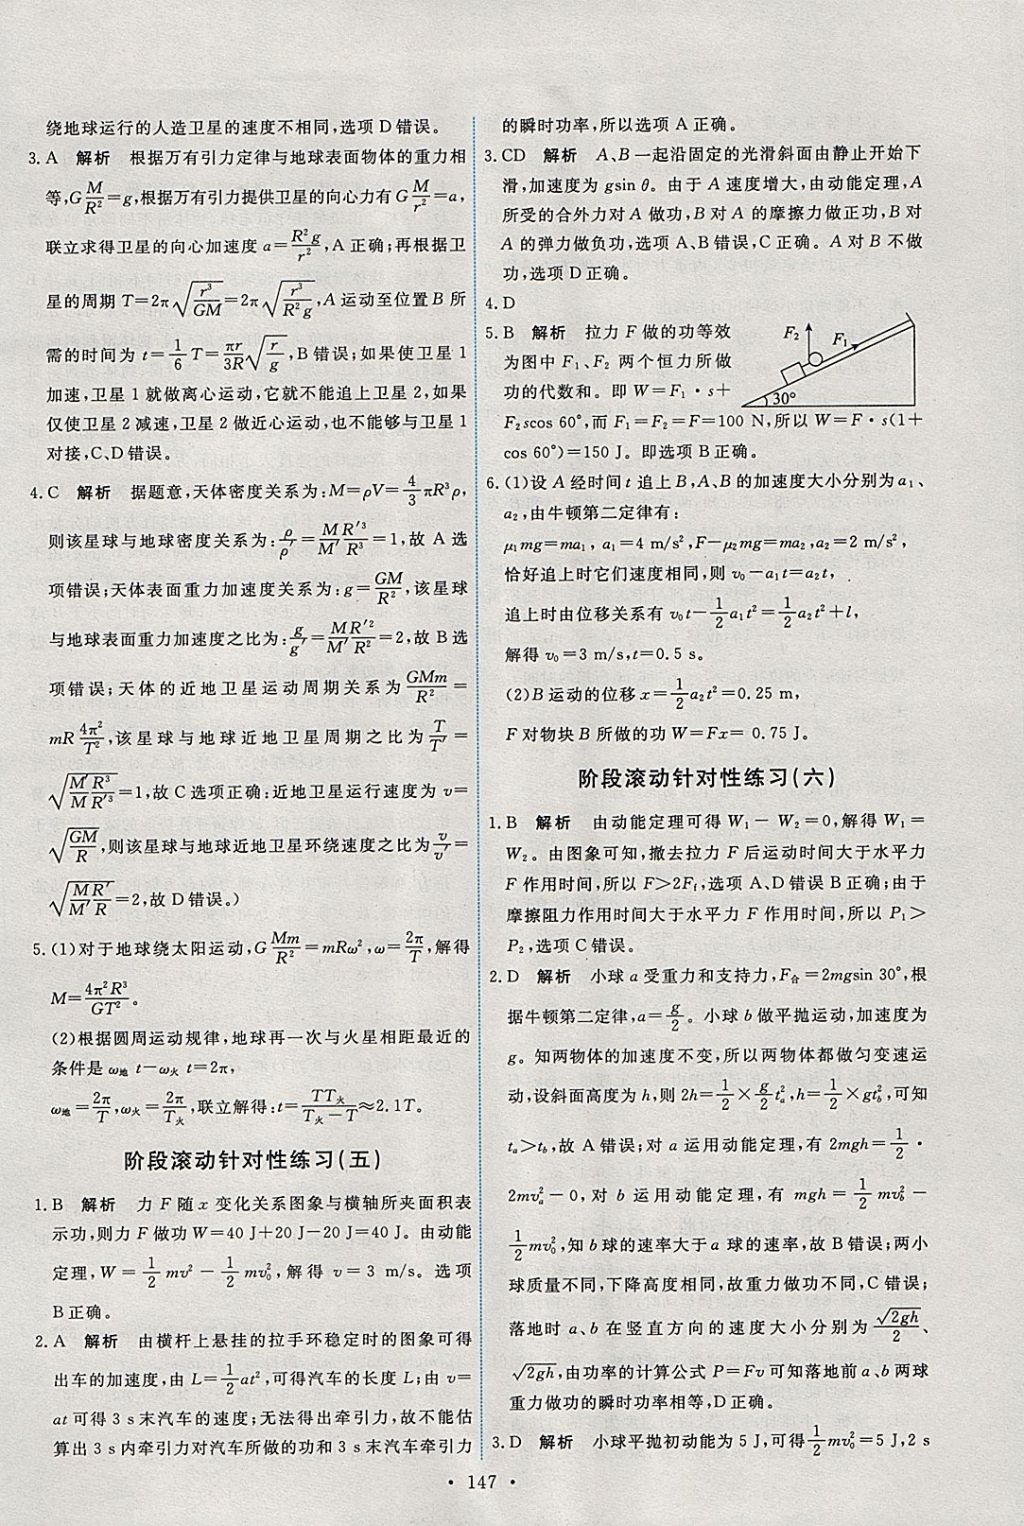 绕地球运行的人造卫星的速度不相同,选项D错误。
3. A 解析 根据万有引力定律与地球表面物体的重力相
等,G\frac{M}{R^2}=g,根据万有引力提供卫星的向心力有G\frac{M}{r^2}=a,
联立求得卫星的向心加速度a=\frac{R^2g}{r^2},A正确;再根据卫
星的周期T=2π\sqrt{\frac{r^3}{GM}}=2π\sqrt{\frac{r^3}{R^2g}},A运动至位置B所
需的时间为t=\frac{1}{6}T=\frac{πr}{3R}\sqrt{\frac{r}{g}},B错误;如果使卫星1
加速,卫星1就做离心运动,它就不能追上卫星2,如果
仅使卫星2减速,卫星2做近心运动,也不能够与卫星1
对接,C、D错误。
4. C 解析 据题意,天体密度关系为:M=ρV=\frac{4}{3}πR^3ρ,
则该星球与地球密度关系为:\frac{ρ}{ρ'}=\frac{M}{M'}\frac{R'^3}{R^3}=1,故A选
项错误;天体表面重力加速度关系为:g=\frac{GM}{R^2},该星球
与地球表面重力加速度之比为:\frac{g}{g'}=\frac{M}{M'}\frac{R'^2}{R^2}=2,故B选
项错误;天体的近地卫星运动周期关系为\frac{GMm}{R^2}=
mR\frac{4π^2}{T^2},该星球与地球近地卫星周期之比为\frac{T}{T'}=
\sqrt{\frac{M'}{M}\frac{R^3}{R'^3}}=1,故C选项正确;近地卫星运行速度为v=
\sqrt{\frac{GM}{R}},则该星球与地球近地卫星环绕速度之比为\frac{v}{v'}=
\sqrt{\frac{M}{M'}\frac{R'}{R}}=2,故D错误。)
5. (1)对于地球绕太阳运动,G\frac{Mm}{R^2}=mRω^2,ω=\frac{2π}{T},解得
M=\frac{4π^2R^3}{GT^2}。
(2)根据圆周运动规律,地球再一次与火星相距最近的
条件是ω_地 t-ω_火 t=2π,
ω_地=\frac{2π}{T},ω_火=\frac{2π}{T_火},联立解得:t=\frac{TT_火}{T_火-T}≈2.1T。
阶段滚动针对性练习(五)
1. B 解析 力F随x变化关系图象与横轴所夹面积表
示功,则力F做功W=40 J+20 J-20 J=40 J。由动能
定理,W=\frac{1}{2}mv^2-\frac{1}{2}mv_0^2,解得v=3 m/s。选项
B正确。
2. A 解析 由横杆上悬挂的拉手环稳定时的图象可得
出车的加速度,由L=\frac{1}{2}at^2,可得汽车的长度L;由v=
at可得3 s末汽车的速度;无法得出牵引力,故不能估
算出3 s内牵引力对汽车所做的功和3 s末汽车牵引力
的瞬时功率,所以选项A正确。
3. CD 解析 A、B一起沿固定的光滑斜面由静止开始下
滑,加速度为gsin θ。由于A速度增大,由动能定理,A
所受的合外力对A做功,B对A的摩擦力做正功,B对
A的弹力做负功,选项A、B错误,C正确。A对B不做
功,选项D正确。
4. D
5. B 解析 拉力F做的功等效
为图中F_1、F_2两个恒力所做
功的代数和。即W=F_1·s+
F_2 F_1 30°
F_2scos 60°,而F_1=F_2=F=100 N,所以W=F·s(1+
cos 60°)=150 J。即选项B正确。
6. (1)设A经时间t追上B,A、B的加速度大小分别为a_1、
a_2,由牛顿第二定律有:
μ_1mg=ma_1,a_1=4 m/s^2,F-μ_2mg=ma_2,a_2=2 m/s^2,
恰好追上时它们速度相同,则v_0-a_1t=a_2t,
追上时由位移关系有v_0t-\frac{1}{2}a_1t^2=\frac{1}{2}a_2t^2+l,
解得v_0=3 m/s,t=0.5 s。
(2)B运动的位移x=\frac{1}{2}a_2t^2=0.25 m,
F对物块B所做的功W=Fx=0.75 J。
阶段滚动针对性练习(六)
1. B 解析 由动能定理可得W_1-W_2=0,解得W_1=
W_2。由图象可知,撤去拉力F后运动时间大于水平力
F作用时间,所以F>2F_f,选项A、D错误B正确;由于
摩擦阻力作用时间大于水平力F作用时间,所以P_1>
P_2,选项C错误。
2. D 解析 小球a受重力和支持力,F_合=2mgsin 30°,根
据牛顿第二定律,a=\frac{g}{2}。小球b做平抛运动,加速度为
g。知两物体的加速度不变,所以两物体都做匀变速运
动,设斜面高度为h,则2h=\frac{1}{2}×\frac{g}{2}t_a^2,h=\frac{1}{2}×gt_b^2,可知
t_a>t_b,故A错误;对a运用动能定理,有2mgh=\frac{1}{2}·
2mv_a^2-0,对b运用动能定理,有mgh=\frac{1}{2}mv_b^2-
\frac{1}{2}mv_0^2,知b球的速率大于a球的速率,故B错误;两小
球质量不同,下降高度相同,故重力做功不同,C错误;
落地时a、b在竖直方向的速度大小分别为\frac{\sqrt{2gh}}{2}、
\sqrt{2gh},由功率的计算公式P=Fv可知落地前a、b两球
重力做功的瞬时功率相等,D正确。
3. D 解析 小球平抛初动能为5 J,可得\frac{1}{2}mv_0^2=5 J,2 s
· 147 ·